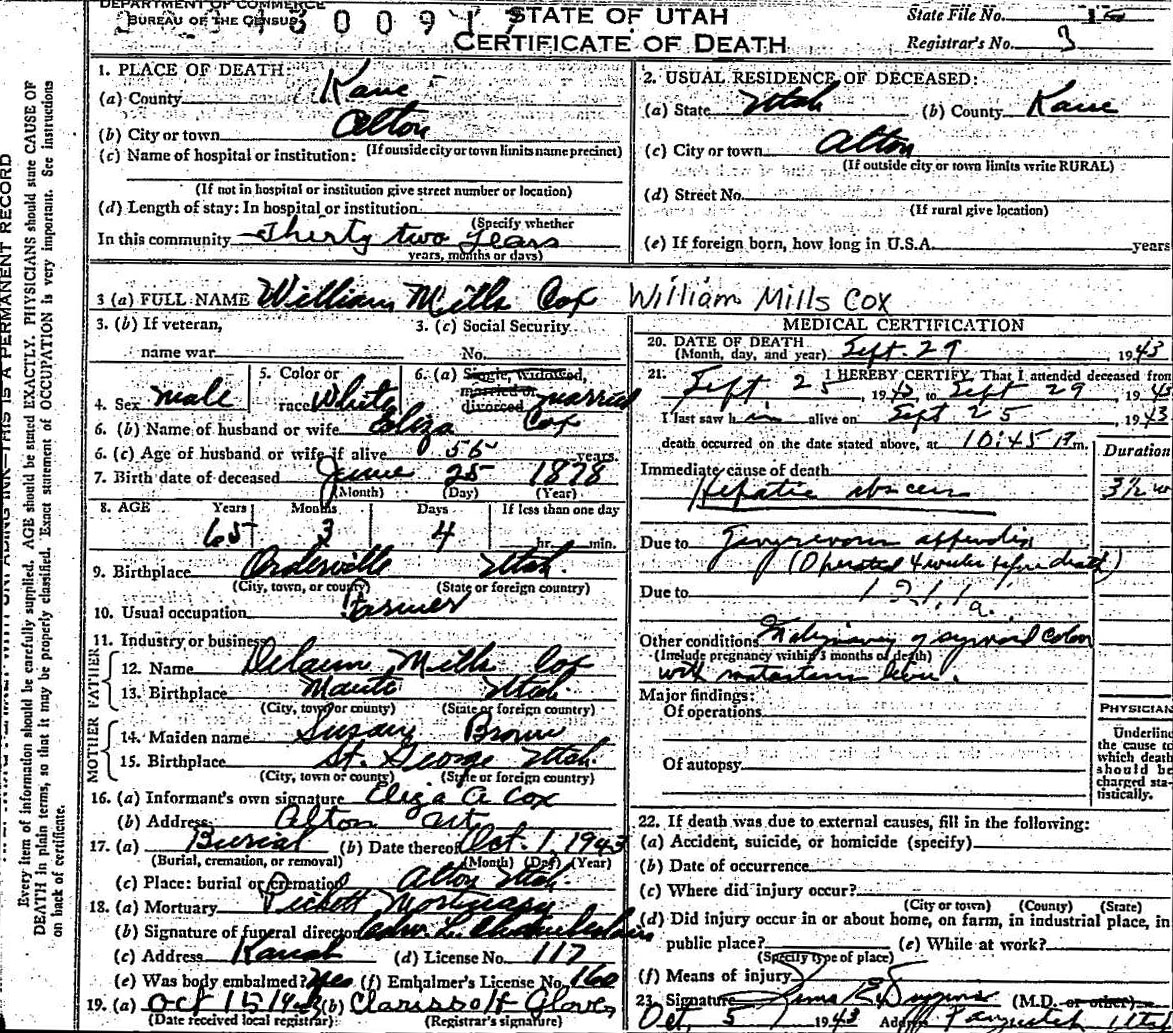 DEPARTMENT OF COMMERCE
BUREAU OF THE CENSUS
STATE OF UTAH
CERTIFICATE OF DEATH
State File No.
Registrar's No. 3
1. PLACE OF DEATH:
(a) County Kane
(b) City or town Alton
(If outside city or town limits name precinct)
(c) Name of hospital or institution:
(If not in hospital or institution give street number or location)
(d) Length of stay: In hospital or institution
(Specify whether
In this community Thirty two years
years, months or days)
2. USUAL RESIDENCE OF DECEASED:
(a) State Utah (b) County Kane
(c) City or town Alton
(If outside city or town limits write RURAL)
(d) Street No.
(If rural give location)
(e) If foreign born, how long in U.S.A. years
3 (a) FULL NAME William Mills Cox William Mills Cox
3. (b) If veteran,
name war
3. (c) Social Security
No.
4. Sex Male
5. Color or
race White
6. (a) Single, widowed,
married or
divorced married
6. (b) Name of husband or wife Eliza Cox
6. (c) Age of husband or wife if alive 56 years.
7. Birth date of deceased June 25 1878
(Month) (Day) (Year)
8. AGE Years Months Days If less than one day
65 3 4 hr. min.
9. Birthplace Orderville Utah.
(City, town, or county) (State or foreign country)
10. Usual occupation Farmer
11. Industry or business
FATHER
12. Name Delaun Mills Cox
13. Birthplace Manti Utah.
(City, town or county) (State or foreign country)
MOTHER
14. Maiden name Susan Brown
15. Birthplace St. George Utah.
(City, town or county) (State or foreign country)
16. (a) Informant's own signature Eliza A Cox
(b) Address Alton Ut.
17. (a) Burial (b) Date thereof Oct. 1, 1943
(Burial, cremation, or removal) (Month) (Day) (Year)
(c) Place: burial or cremation Alton Utah.
18. (a) Mortuary Mortuary
(b) Signature of funeral director Chamberlain
(c) Address Kanab (d) License No. 117
(e) Was body embalmed? Yes (f) Embalmer's License No. 160
19. (a) Oct 15 1943 (b) Clarissa H Glover
(Date received local registrar) (Registrar's signature)
MEDICAL CERTIFICATION
20. DATE OF DEATH
(Month, day, and year) Sept. 29, 1943
21. I HEREBY CERTIFY, That I attended deceased from
Sept. 25, 1943, to Sept 29, 1943
I last saw him alive on Sept 25, 1943
death occurred on the date stated above, at 10:45 P.m.
Duration
Immediate cause of death
Hepatic abscess 3½
Due to Gangrenous appendix
(Operated 4 weeks before death)
Due to
121.1a.
Other conditions Malignancy of sigmoid colon
(Include pregnancy within 3 months of death)
with metastasis liver.
Major findings:
Of operations
Of autopsy
PHYSICIAN
Underline
the cause to
which death
should be
charged sta-
tistically.
22. If death was due to external causes, fill in the following:
(a) Accident, suicide, or homicide (specify)
(b) Date of occurrence
(c) Where did injury occur?
(City or town) (County) (State)
(d) Did injury occur in or about home, on farm, in industrial place, in
public place? (e) While at work?
(Specify type of place)
(f) Means of injury
23. Signature (M.D. or other)
Oct, 5, 1943 Address Panguitch Utah
Every item of information should be carefully supplied. AGE should be stated EXACTLY. PHYSICIANS should state CAUSE OF
DEATH in plain terms, so that it may be properly classified. Exact statement of OCCUPATION is very important. See instructions
on back of certificate.
THIS IS A PERMANENT RECORD